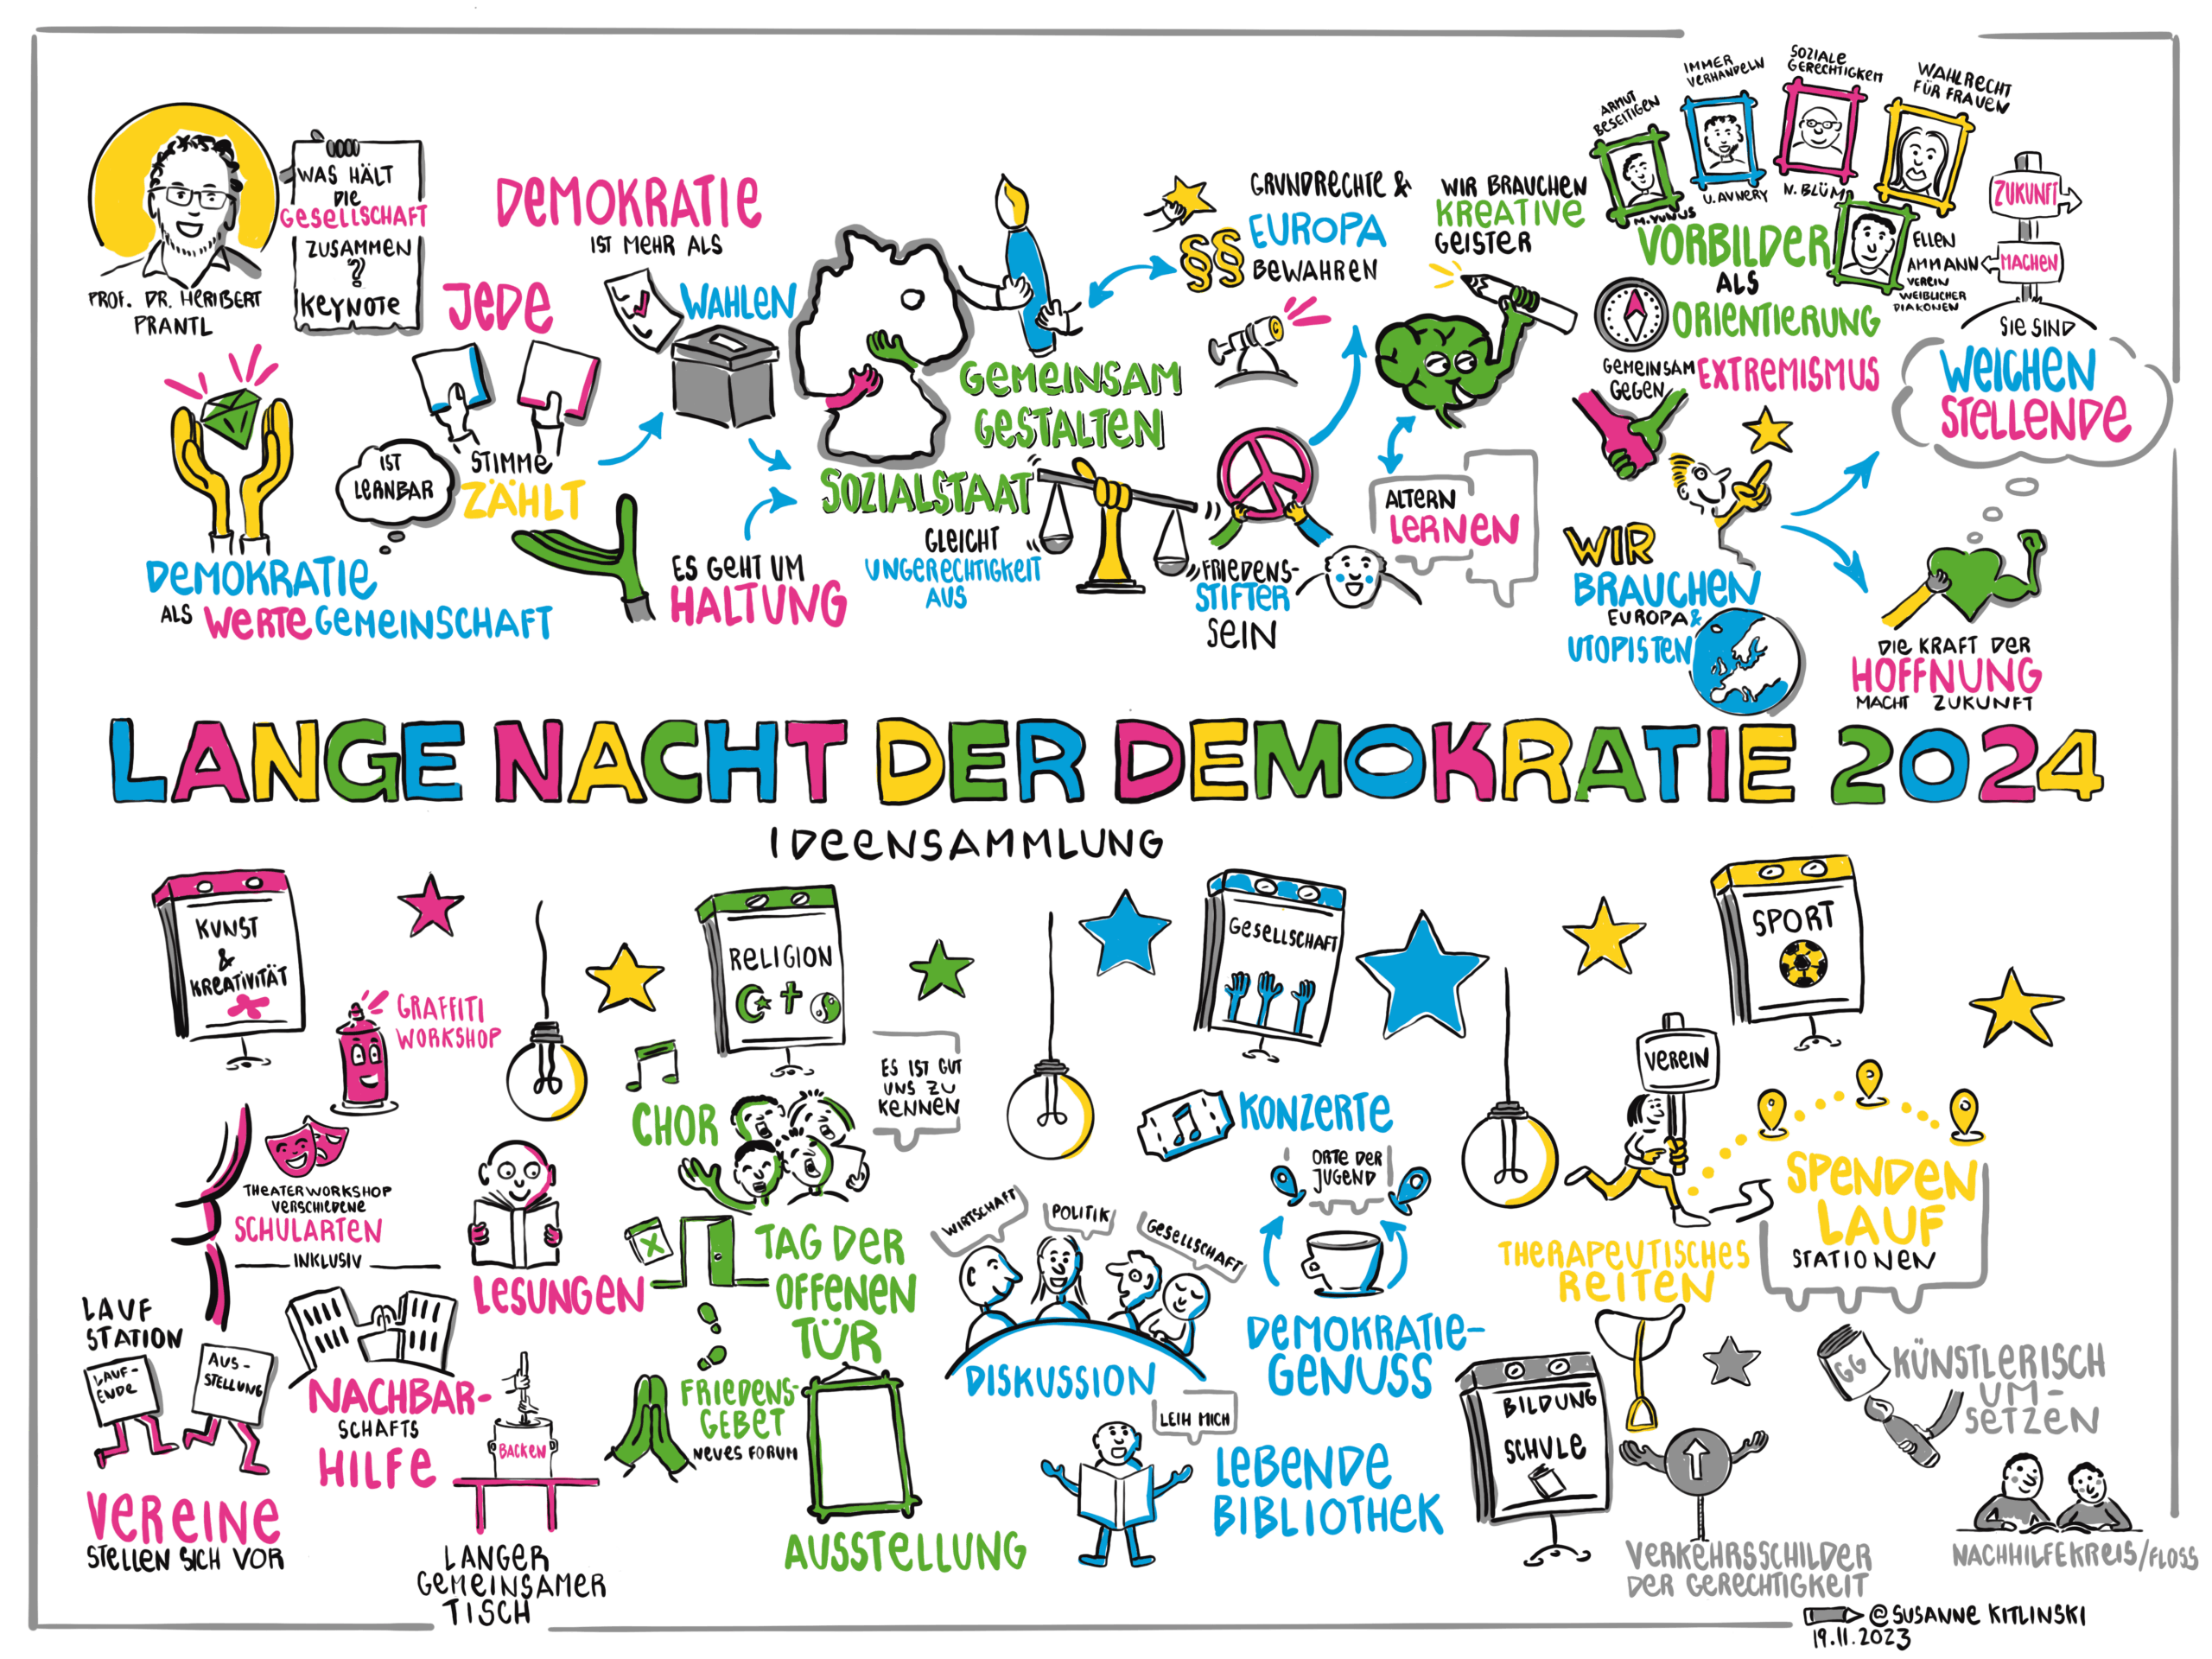 PROF. DR. HERIBERT
PRANTL
WAS HÄLT
DIE
GESELLSCHAFT
ZUSAMMEN
?
KEYNOTE
DEMOKRATIE
ALS WERTEGEMEINSCHAFT
JEDE
STIMME
ZÄHLT
IST
LERNBAR
DEMOKRATIE
IST MEHR ALS
WAHLEN
ES GEHT UM
HALTUNG
GEMEINSAM
GESTALTEN
SOZIALSTAAT
GLEICHT
UNGERECHTIGKEIT
AUS
GRUNDRECHTE &
EUROPA
BEWAHREN
§§
FRIEDENS-
STIFTER
SEIN
WIR BRAUCHEN
KREATIVE
GEISTER
ALTERN
LERNEN
ARMUT
BESEITIGEN
M. YUNUS
IMMER
VERHANDELN
U. AVNERY
SOZIALE
GERECHTIGKEIT
N. BLÜM
WAHLRECHT
FÜR FRAUEN
ELLEN
AMMANN
VEREIN
WEIBLICHER
DIAKONEN
VORBILDER
ALS
ORIENTIERUNG
GEMEINSAM
GEGEN
EXTREMISMUS
WIR
BRAUCHEN
EUROPA &
UTOPISTEN
ZUKUNFT
MACHEN
SIE SIND
WEICHEN
STELLENDE
DIE KRAFT DER
HOFFNUNG
MACHT ZUKUNFT
LANGE NACHT DER DEMOKRATIE 2024
IDEENSAMMLUNG
KUNST
&
KREATIVITÄT
GRAFFITI
WORKSHOP
THEATERWORKSHOP
VERSCHIEDENE
SCHULARTEN
INKLUSIV
LESUNGEN
LAUF
STATION
LAUF-
ENDE
AUS-
STELLUNG
VEREINE
STELLEN SICH VOR
NACHBAR-
SCHAFTS
HILFE
BACKEN
LANGER
GEMEINSAMER
TISCH
RELIGION
CHOR
ES IST GUT
UNS ZU
KENNEN
X
TAG DER
OFFENEN
TÜR
FRIEDENS-
GEBET
NEUES FORUM
AUSSTELLUNG
GESELLSCHAFT
KONZERTE
WIRTSCHAFT
POLITIK
GESELLSCHAFT
DISKUSSION
ORTE DER
JUGEND
DEMOKRATIE-
GENUSS
LEIH MICH
LEBENDE
BIBLIOTHEK
SPORT
VEREIN
SPENDEN
LAUF
STATIONEN
THERAPEUTISCHES
REITEN
BILDUNG
SCHULE
GG
KÜNSTLERISCH
UM-
SETZEN
VERKEHRSSCHILDER
DER GERECHTIGKEIT
NACHHILFEKREIS/FLOSS
@SUSANNE KITLINSKI
19.11.2023